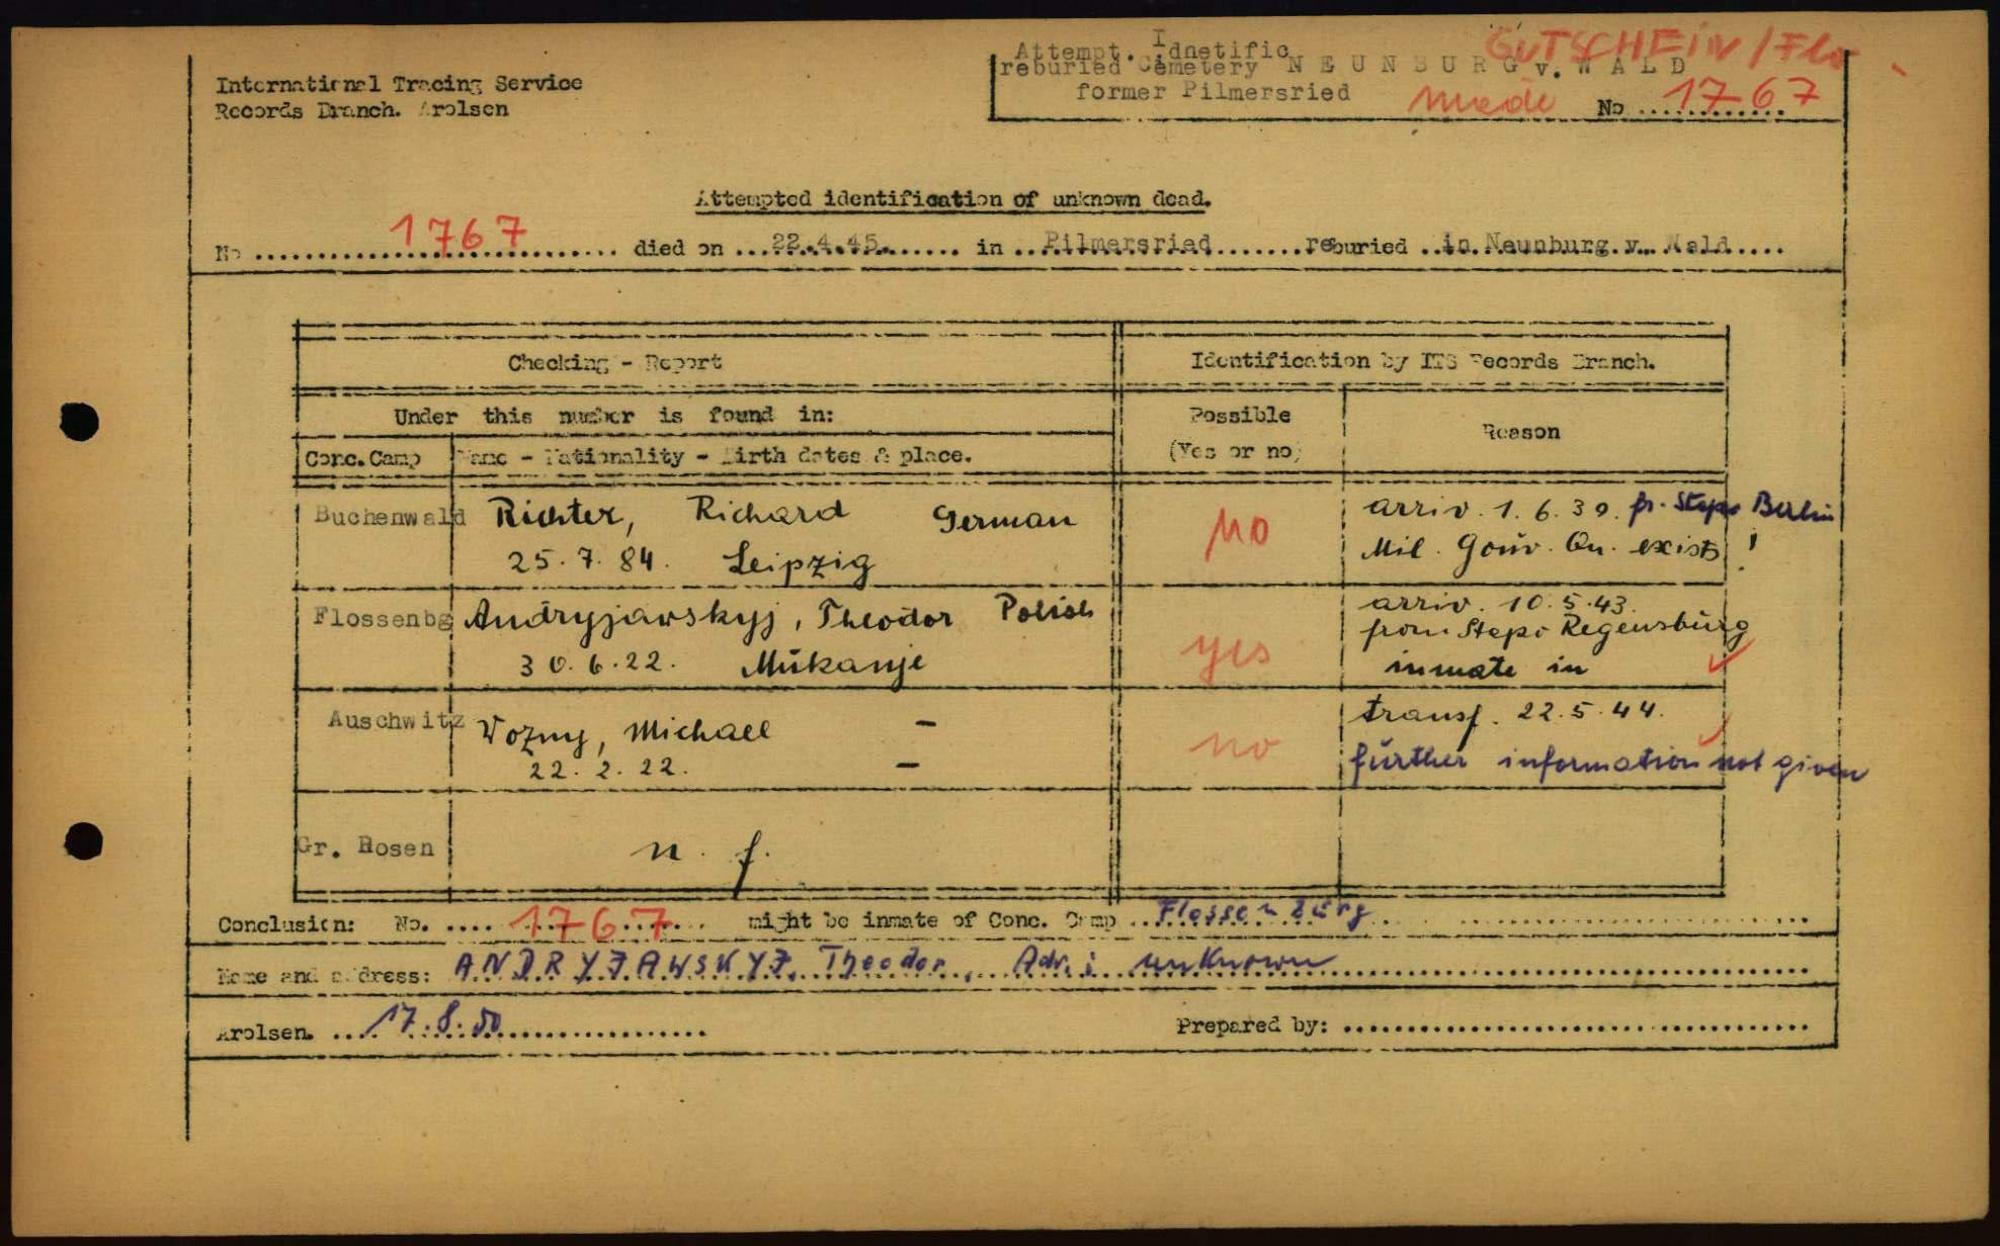 Attempt. Idnetific GUTSCHEIN/Flo
reburied Cemetery NEUNBURG v. WALD
International Tracing Service
former Pilmersried No 1767
Records Branch. Arolsen
Attempted identification of unknown dead.
No 1767 died on 22.4.45. in Pilmersried reburied in Neunburg v. Wald
Checking - Report Identification by ITS Records Branch.
Under this number is found in: Possible (Yes or no) Reason
Conc.Camp Name - Nationality - Birth dates & place.
Buchenwald Richter, Richard German no arriv. 1.6.39. fr. Stapo Berlin
25.7.84. Leipzig Mil. Gouv. Qu. exists !
Flossenbg Andryjawskyj, Theodor Polish yes arriv. 10.5.43.
from Stapo Regensburg
30.6.22. Mukanje inmate in
Auschwitz Vozny, Michael - no transf. 22.5.44.
22.2.22. - further information not given
Gr. Rosen n. f.
Conclusion: No. 1767 might be inmate of Conc. Camp Flossenbürg
Name and address: ANDRYJAWSKYJ, Theodor, Adr.: unknown
Arolsen. 17.8.50 Prepared by: